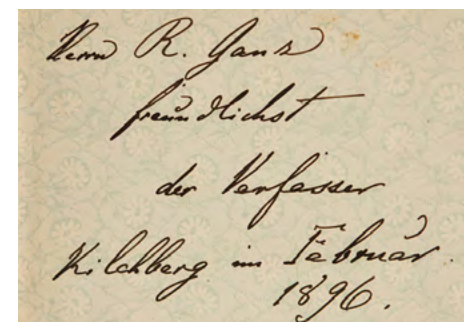 Herrn R. Ganz
freundlichst
der Verfasser
Kilchberg im Februar.
1896.